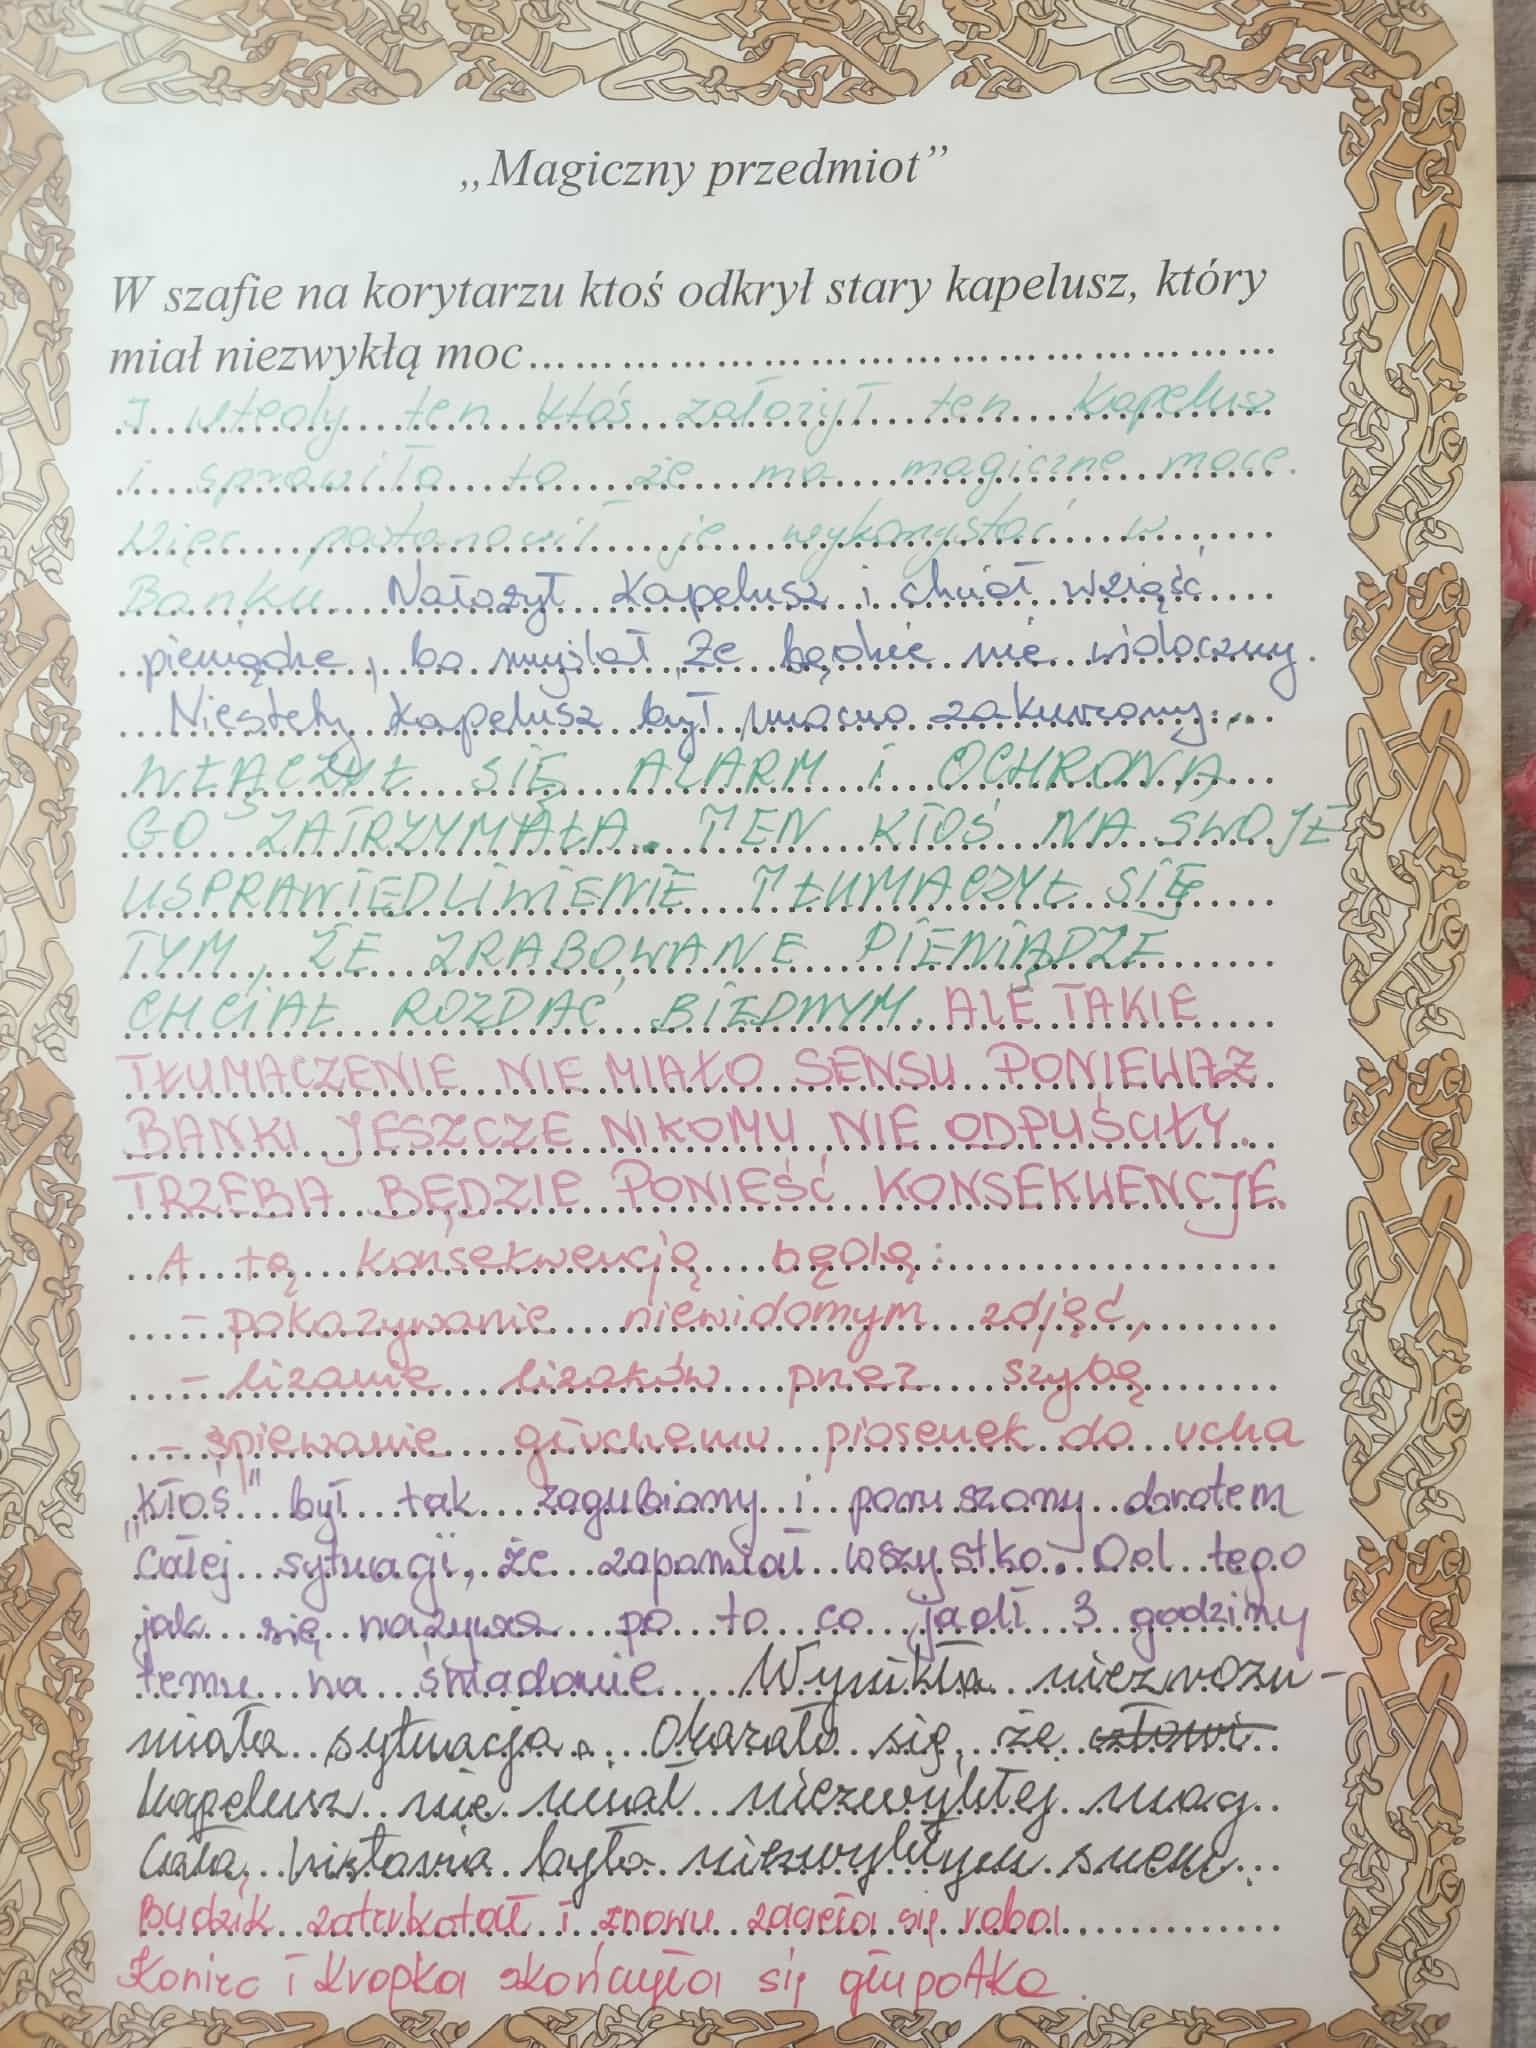 „Magiczny przedmiot”
W szafie na korytarzu ktoś odkrył stary kapelusz, który
miał niezwykłą moc...................................................
I wtedy ten ktoś założył ten kapelusz
i sprawiło to że ma magiczne moce.
Więc postanowił je wykorzystać w
Banku Nałożył kapelusz i chciał wziąść
pieniądze, bo myślał, że będzie nie widoczny.
Niestety kapelusz był mocno zakurzony...
WŁĄCZYŁ SIĘ ALARM I OCHRONA
GO ZATRZYMAŁA. TEN KTOŚ NA SWOJE
USPRAWIEDLIWIENIE TŁUMACZYŁ SIĘ
TYM, ŻE ZRABOWANE PIENIĄDZE
CHCIAŁ ROZDAĆ BIEDNYM. ALE TAKIE
TŁUMACZENIE NIE MIAŁO SENSU PONIEWAŻ
BANKI JESZCZE NIKOMU NIE ODPUŚCIŁY.
TRZEBA BĘDZIE PONIEŚĆ KONSEKWENCJE.
A tą konsekwencją będą:
- pokazywanie niewidomym zdjęć,
- lizanie lizaków przez szybą
- śpiewanie głuchemu piosenek do ucha
„Ktoś" był tak zagubiony i poruszony obrotem
całej sytuacji, że zapomniał wszystko. Od tego
jak się nazywa po to co jadł 3 godziny
temu na śniadanie Wynikła niezrozu-
miała sytuacja. Okazało się, że
kapelusz nie miał niezwykłej mocy.
Cała historia była niezwykłym snem.
Budzik zaterkotał i znowu zaczęła się robo
Koniec i kropka skończyła się głupotka.